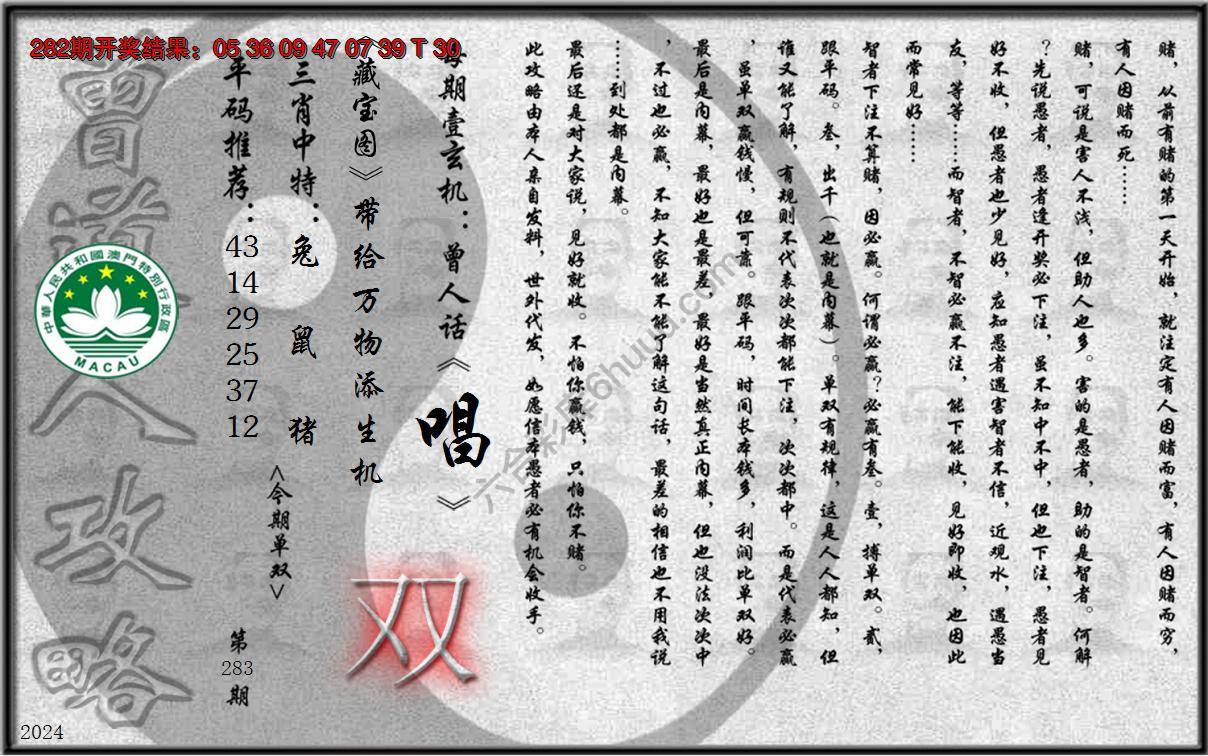 282期开奖结果：05 36 09 47 07 39 T 30
赌，从前有赌的第一天开始，就注定有人因赌而富，有人因赌而穷，
有人因赌而死……
赌，可说是害人不浅，但助人也多。害的是愚者，助的是智者。何解
？先说愚者，愚者逢开奖必下注，虽不知中不中，但也下注，愚者见
好不收，但愚者也少见好，应知愚者遇害智者不信，近观水，遇愚当
友，等等……而智者，不智必赢不注，能下能收，见好即收，也因此
而常见好……
智者下注不算赌，因必赢。何谓必赢？必赢有叁。壹，搏单双。贰，
跟平码。叁，出千（也就是内幕）。单双有规律，这是人人都知，但
谁又能了解，有规则不代表次次都能下注，次次都中。而是代表必赢
，虽单双赢钱慢，但可靠。跟平码，时间长本钱多，利润比单双好。
最后是内幕，最好也是最差，最好是当然真正内幕，但也没法次次中
，不过也必赢，不知大家能不能了解这句话，最差的相信也不用我说
……到处都是内幕。
最后还是对大家说，见好就收。不怕你赢钱，只怕你不赌。
此攻略由本人亲自发料，世外代发，如愿信本愚者必有机会收手。
每期壹玄机：曾人话《唱》
《藏宝图》带给万物添生机
三肖中特：兔 鼠 猪
平码推荐：43 14 29 25 37 12
<今期单双>
双
第283期
曾道人攻略
中華人民共和國澳門特別行政區
MACAU
六合彩库6huuu.com
2024